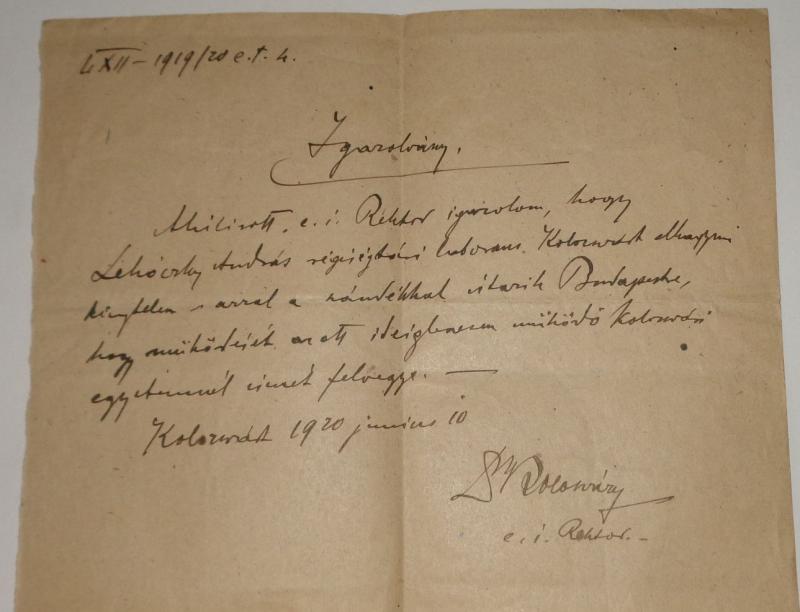 XII – 1919/20 e.t.h.
Igazolvány.
Alulirott, e. i. Rektor igazolom, hogy
Lehóczky András régiségtári laborans Kolozsvárt elhagyni
kénytelen s azzal a szándékkal utazik Budapestre,
hogy működését az ott ideiglenesen működő Kolozsvári
egyetemnél ismét felvegye. —
Kolozsvárt 1920 junius 10
Dr
e. i. Rektor. –